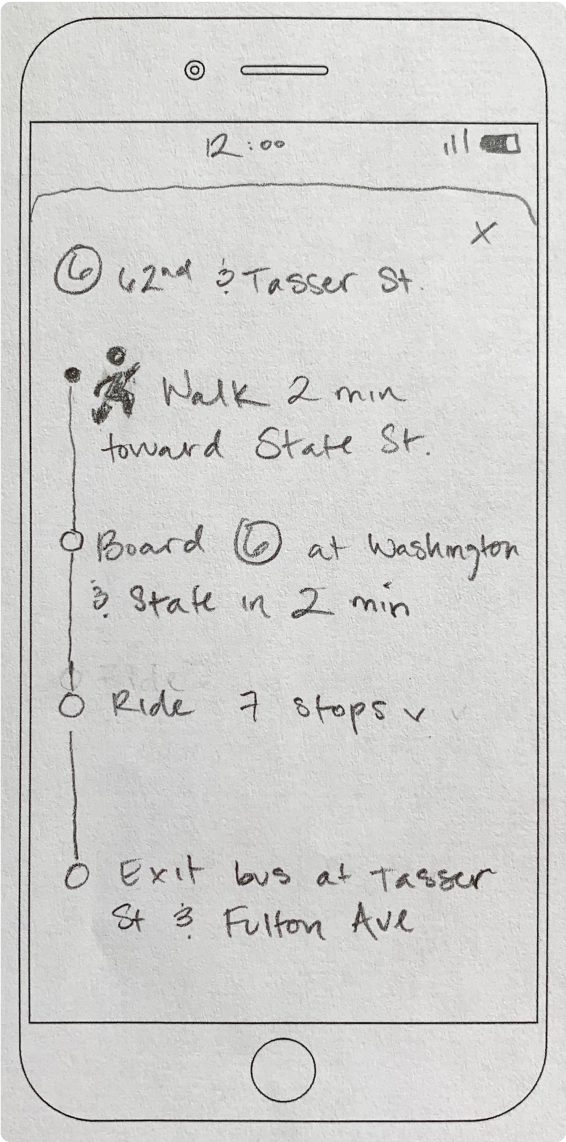 12:00
X
6 62nd & Tasser St.
Walk 2 min
toward State St.
Board 6 at Washington
& State in 2 min
Ride 7 stops
Exit bus at Tasser
St & Fulton Ave